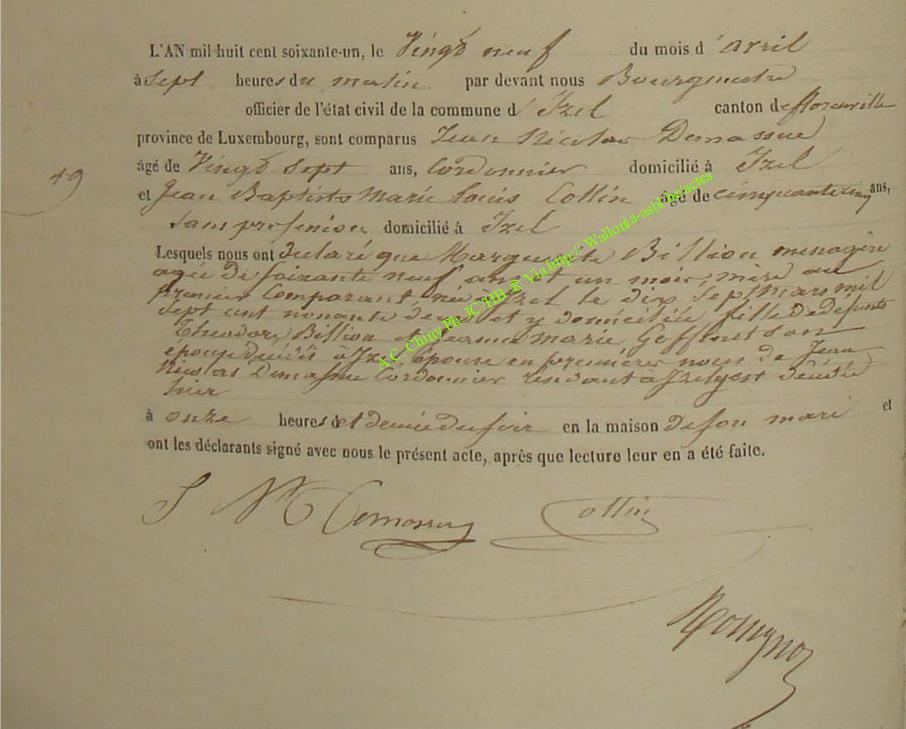 L'AN mil huit cent soixante-un, le Vingt neuf du mois d'avril
à sept heures du matin par devant nous Bourgmestre
officier de l'état civil de la commune d'Izel canton de florenville
province de Luxembourg, sont comparus Jean Nicolas Demasse
âgé de Vingt sept ans, Cordonnier domicilié à Izel
49
et Jean Baptiste Marie Louis Collin âgé de cinquante cinq ans,
sans profession domicilié à Izel
Lesquels nous ont declaré que Marguerite Billion menagère
agée de soixante neuf ans et un mois, mère au
premier Comparant, née à Izel le dix sept Mars mil
sept cent nonante deux et y domiciliée fille de défunts
Theodore Billion et Jeanne Marie Goffinet son
épouse décédés à Izel, épouse en premières noces de Jean
Nicolas Demasse Cordonnier résidant à Izel, est décédée
hier
à onze heures et demie du soir en la maison de son mari et
ont les déclarants signé avec nous le présent acte, après que lecture leur en a été faite.
J N Demasse Collin
A.C. Chiny Ph. JC HB @ Via http:// Wallonia-asbl.org/actes